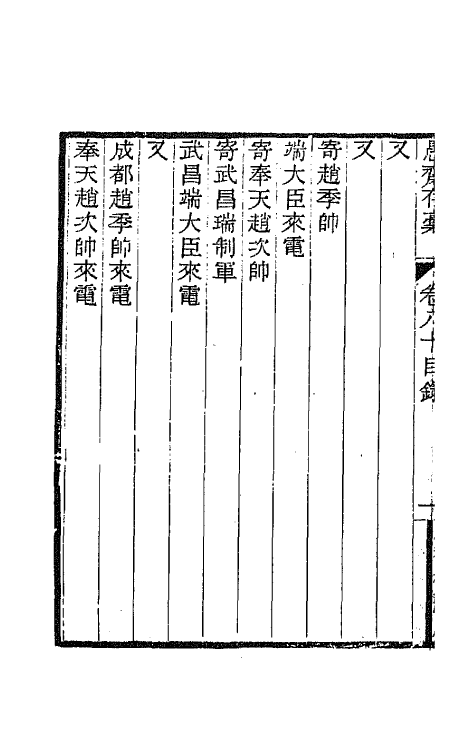 愚齋存稾 卷八十目錄 一
又
又
寄趙季帥
端大臣來電
寄奉天趙次帥
寄武昌瑞制軍
武昌端大臣來電
又
成都趙季帥來電
奉天趙次帥來電